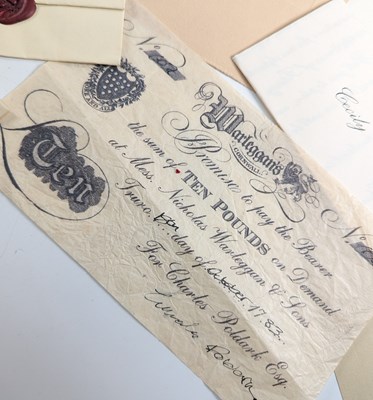 No.
Warleggan's
CORNWALL
Promise to pay the Bearer
the sum of TEN POUNDS on Demand
at Mess. Nicholas Warleggan & Sons
Truro. day of 1783
For Charles Poldark Esq.
Ten
No
Cecily